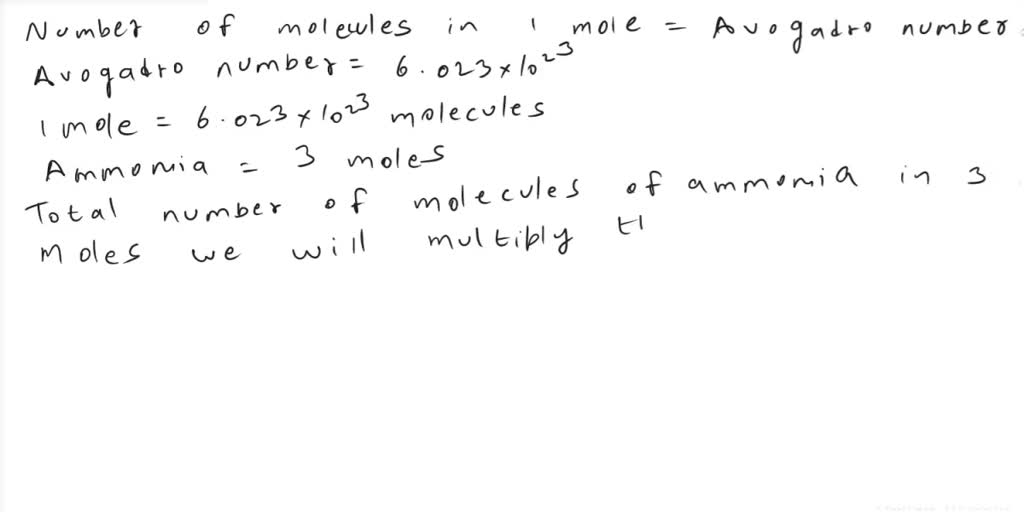 Number of molecules in 1 mole = Avogadro number
Avogadro number = 6.023 × 10²³
1 mole = 6.023 × 10²³ molecules
Ammonia = 3 moles
Total number of molecules of ammonia in 3
moles we will multiply th